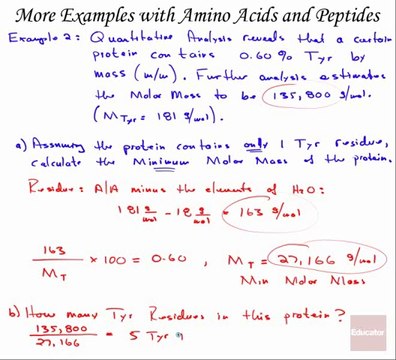 More Examples with Amino Acids and Peptides
Example 2: Quantitative Analysis reveals that a certain
protein contains 0.60% Tyr by
mass (m/m). Further analysis estimates
the Molar Mass to be 135,800 g/mol.
(M Tyr = 181 g/mol).
a) Assuming the protein contains only 1 Tyr residue,
calculate the Minimum Molar Mass of the protein.
Residue: A/A minus the elements of H2O:
181 g/mol - 18 g/mol = 163 g/mol
163/MT × 100 = 0.60 , MT = 27,166 g/mol
Min Molar Mass
b) How many Tyr Residues in this protein?
135,800/27,166 = 5 Tyr
Educator